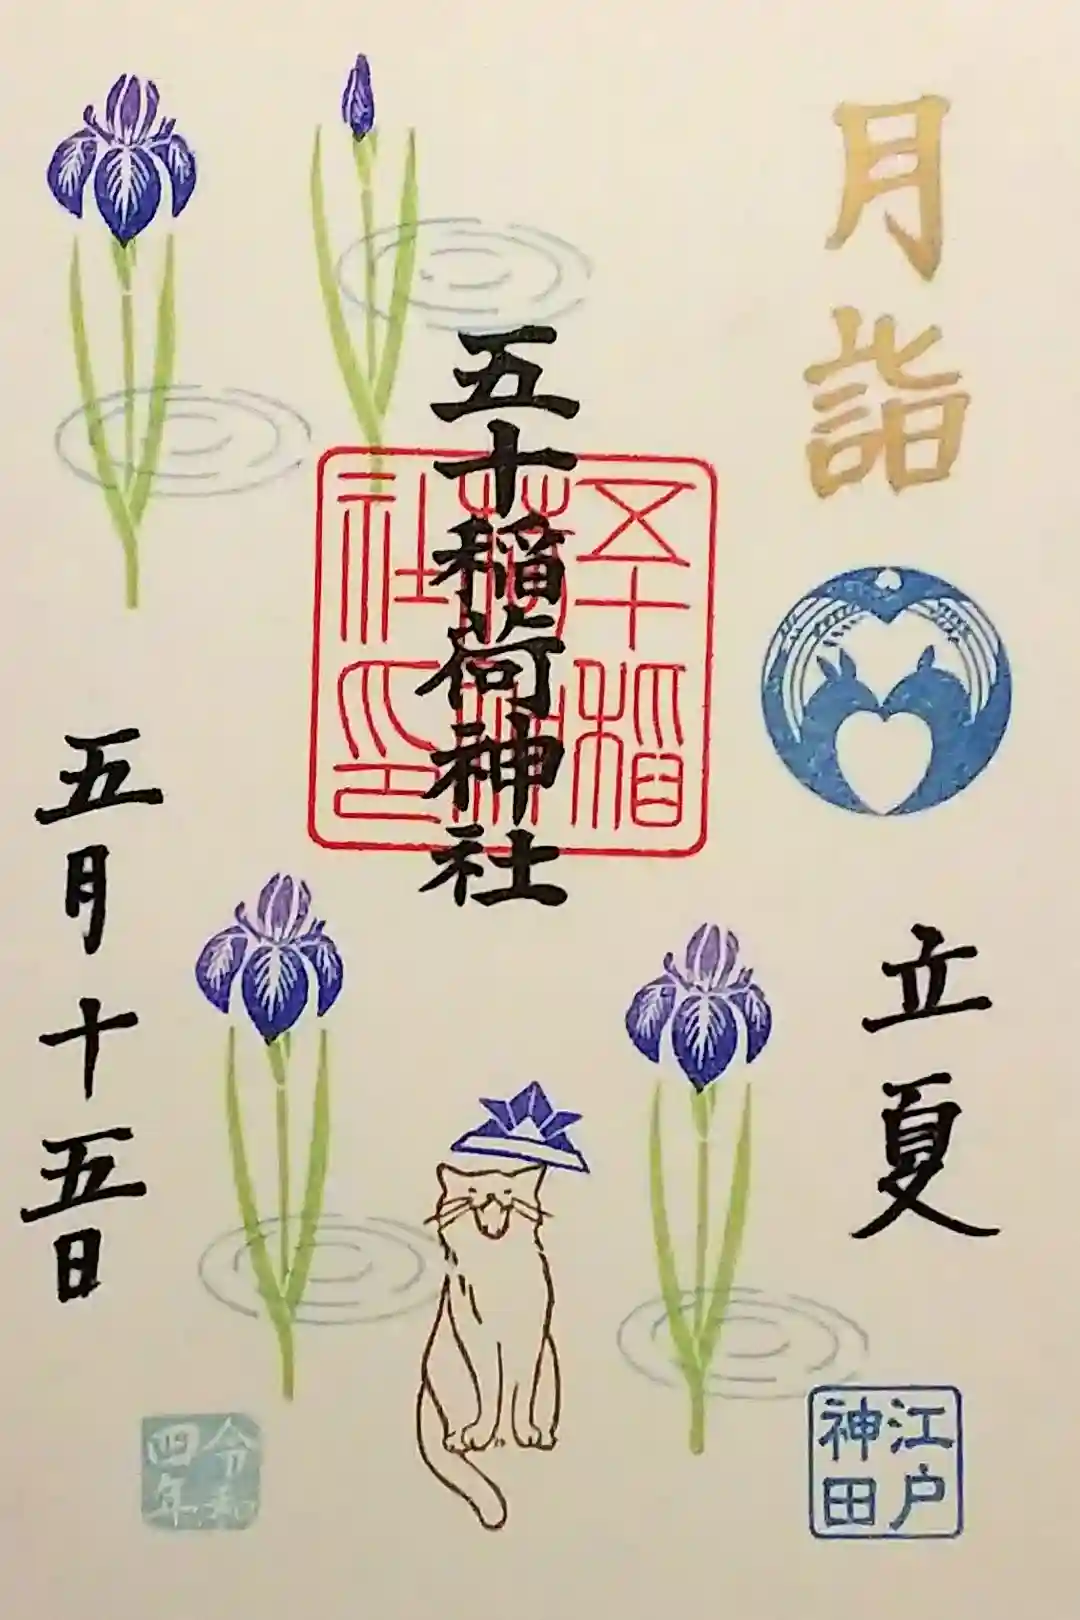 月詣
立夏
江戸
神田
五十稲荷神社
五十稲
荷神
社印
五月十五日
令和
四年